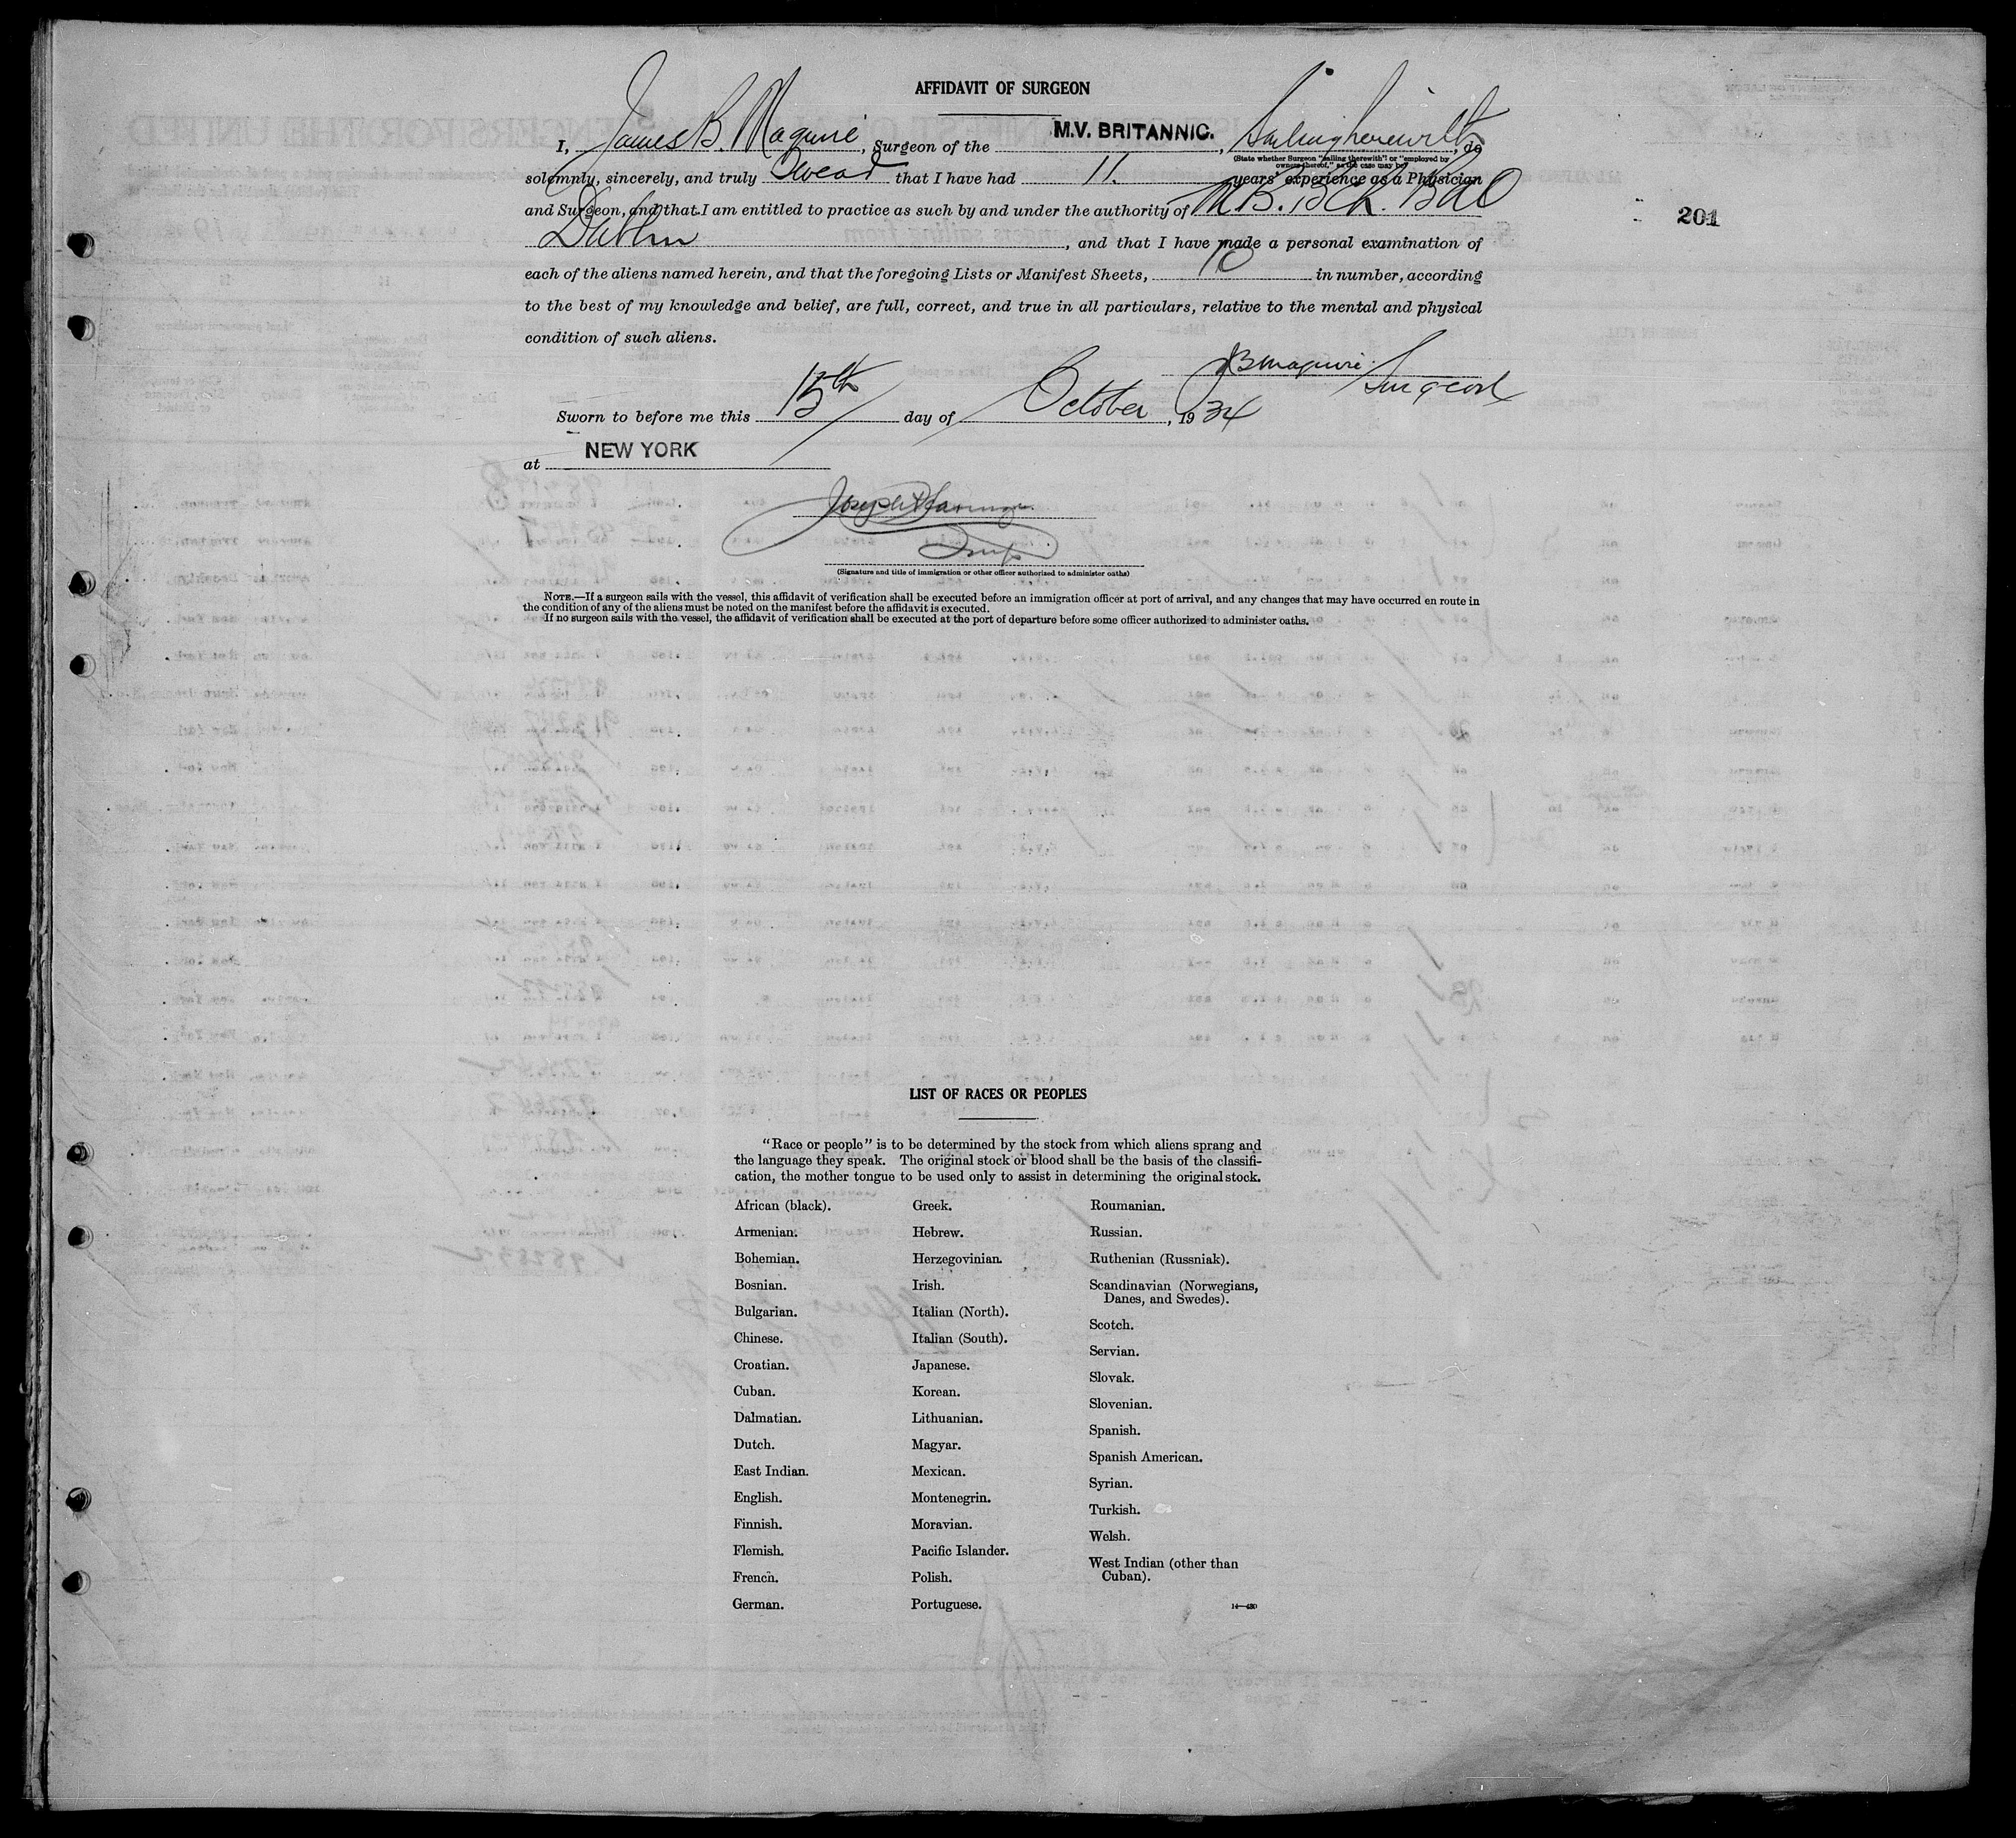 AFFIDAVIT OF SURGEON
I, James B. Maguire, Surgeon of the M.V. BRITANNIC., Sailing therewith, do
(State whether Surgeon "sailing therewith" or "employed by
owners thereof," as the case may be)
solemnly, sincerely, and truly Swear that I have had 11. years' experience as a Physician
and Surgeon, and that I am entitled to practice as such by and under the authority of M.B. BCh. BAO
201
Dublin, and that I have made a personal examination of
each of the aliens named herein, and that the foregoing Lists or Manifest Sheets, 10 in number, according
to the best of my knowledge and belief, are full, correct, and true in all particulars, relative to the mental and physical
condition of such aliens.
JBMaguire Surgeon
Sworn to before me this 15th day of October, 1934
at NEW YORK
Joseph
Insp
(Signature and title of immigration or other officer authorized to administer oaths)
NOTE.—If a surgeon sails with the vessel, this affidavit of verification shall be executed before an immigration officer at port of arrival, and any changes that may have occurred en route in
the condition of any of the aliens must be noted on the manifest before the affidavit is executed.
If no surgeon sails with the vessel, the affidavit of verification shall be executed at the port of departure before some officer authorized to administer oaths.
LIST OF RACES OR PEOPLES
"Race or people" is to be determined by the stock from which aliens sprang and
the language they speak. The original stock or blood shall be the basis of the classifi-
cation, the mother tongue to be used only to assist in determining the original stock.
African (black).
Armenian.
Bohemian.
Bosnian.
Bulgarian.
Chinese.
Croatian.
Cuban.
Dalmatian.
Dutch.
East Indian.
English.
Finnish.
Flemish.
French.
German.
Greek.
Hebrew.
Herzegovinian.
Irish.
Italian (North).
Italian (South).
Japanese.
Korean.
Lithuanian.
Magyar.
Mexican.
Montenegrin.
Moravian.
Pacific Islander.
Polish.
Portuguese.
Roumanian.
Russian.
Ruthenian (Russniak).
Scandinavian (Norwegians,
Danes, and Swedes).
Scotch.
Servian.
Slovak.
Slovenian.
Spanish.
Spanish American.
Syrian.
Turkish.
Welsh.
West Indian (other than
Cuban).
14—430